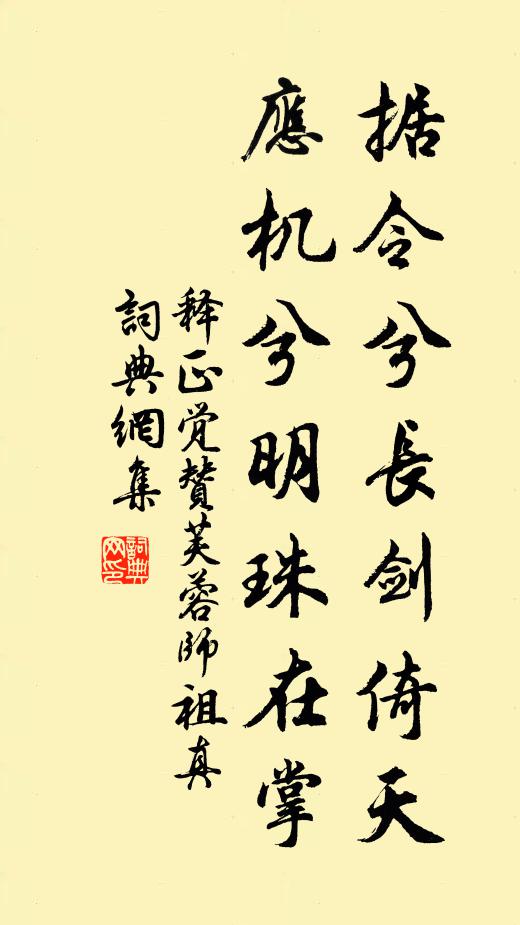 据令兮長剑倚天
應机兮明珠在掌
释正觉贊芙蓉師祖真
詞典網集
詞典網印